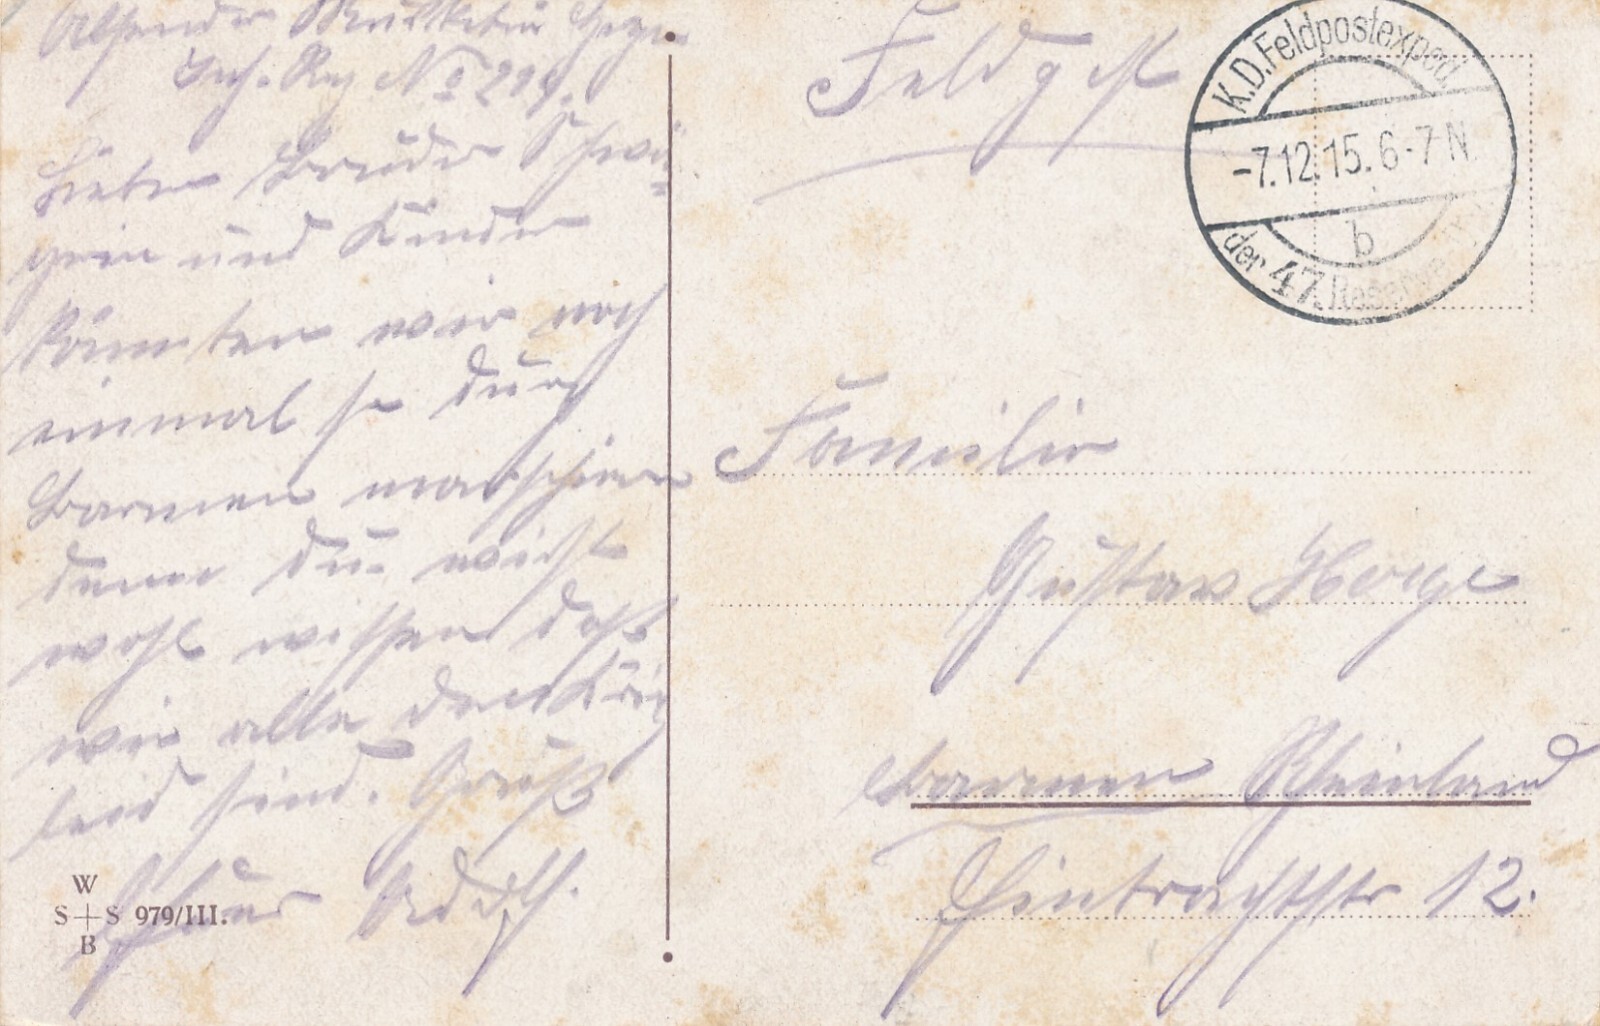 Absender Musketier Hoege
Inf. Reg No 219.
Lieber Bruder Schwä-
gerin und Kinder
könnten wir noch
einmal so durch
Barmen marschieren
denn du wirst
wohl wissen daß
wir alle den Krieg
leid sind. Gruß
Euer Adolf.
W
S+S 979/III.
B
Feldpost
K.D.Feldpostexped.
-7.12.15.6-7N
b
der 47. Reserve
Familie
Gustav Hoege
Barmen Rheinland
Eintrachtstr 12.